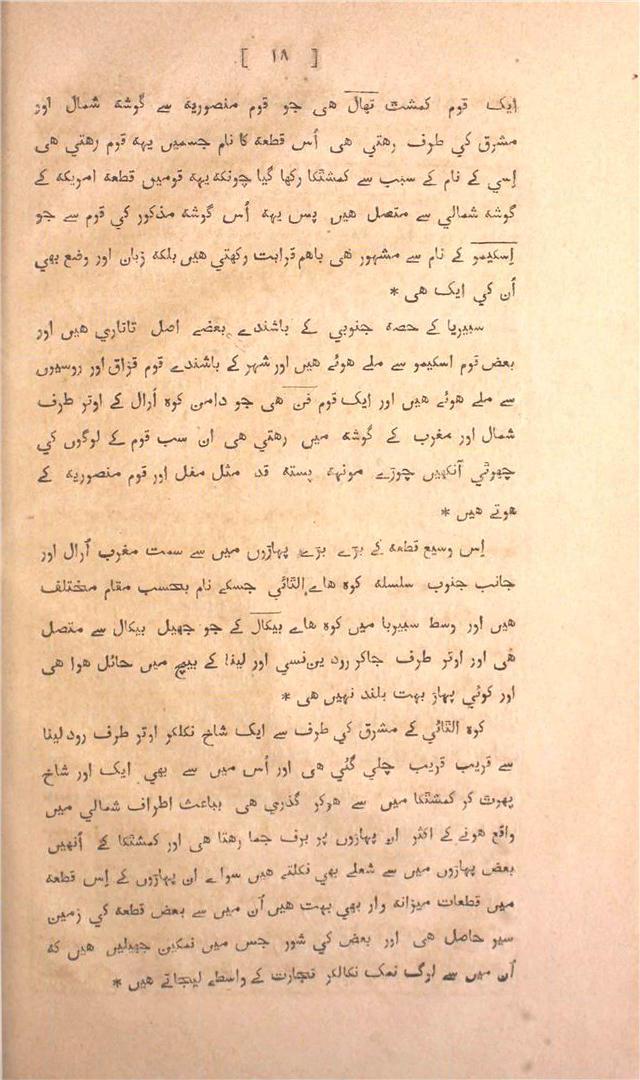 [ ١٨ ]
ایک قوم کمشت تھال هی جو قوم منصوریه سے گوشه شمال اور
مشرق کي طرف رهتي هی اُس قطعه کا نام جسمیں یهه قوم رهتي هی
اِسي کے نام کے سبب سے کمشتکا رکھا گیا چونکه یهه قومیں قطعه امریکه کے
گوشه شمالي سے متصل هیں پس یهه اُس گوشه مذکور کي قوم سے جو
اِسکیمو کے نام سے مشهور هی باهم قرابت رکھتي هیں بلکه زبان اور وضع بھي
اُن کي ایک هی *
سبیریا کے حصه جنوبي کے باشندے بعضے اصل تاتاري هیں اور
بعض قوم اسکیمو سے ملے هوئے هیں اور شهر کے باشندے قوم قزاق اور روسیوں
سے ملے هوئے هیں اور ایک قوم فن هی جو دامن کوه اُرال کے اوتر طرف
شمال اور مغرب کے گوشه میں رهتي هی ان سب قوم کے لوگوں کي
چھوٹي آنکھیں چوڑے مونهه پسته قد مثل مغل اور قوم منصوریه کے
هوتے هیں *
اِس وسیع قطعه کے بڑے بڑے پهاڑوں میں سے سمت مغرب اُرال اور
جانب جنوب سلسله کوه هاے التائي جسکے نام بحسب مقام مختلف
هیں اور وسط سبیریا میں کوه هاے بیکال کے جو جھیل بیکال سے متصل
هی اور اوتر طرف جاکر رود ین‌نسي اور لینا کے بیچ میں حائل هوا هی
اور کوئي پهاڑ بهت بلند نهیں هی *
کوه التائي کے مشرق کي طرف سے ایک شاخ نکلکر اوتر طرف رود لینا
سے قریب قریب چلي گئي هی اور اُس میں سے بھي ایک اور شاخ
پھوٹ کر کمشتکا میں سے هوکر گذري هی بباعث اطراف شمالي میں
واقع هونے کے اکثر ان پهاڑوں پر برف جما رهتا هی اور کمشتکا کے اُنهیں
بعض پهاڑوں میں سے شعلے بھي نکلتے هیں سواے ان پهاڑوں کے اِس قطعه
میں قطعات میزانه وار بھي بهت هیں اُن میں سے بعض قطعه کي زمین
سیر حاصل هی اور بعض کي شور جس میں نمکین جھیلیں هیں که
اُن میں سے لوگ نمک نکالکر تجارت کے واسطے لیجاتے هیں *